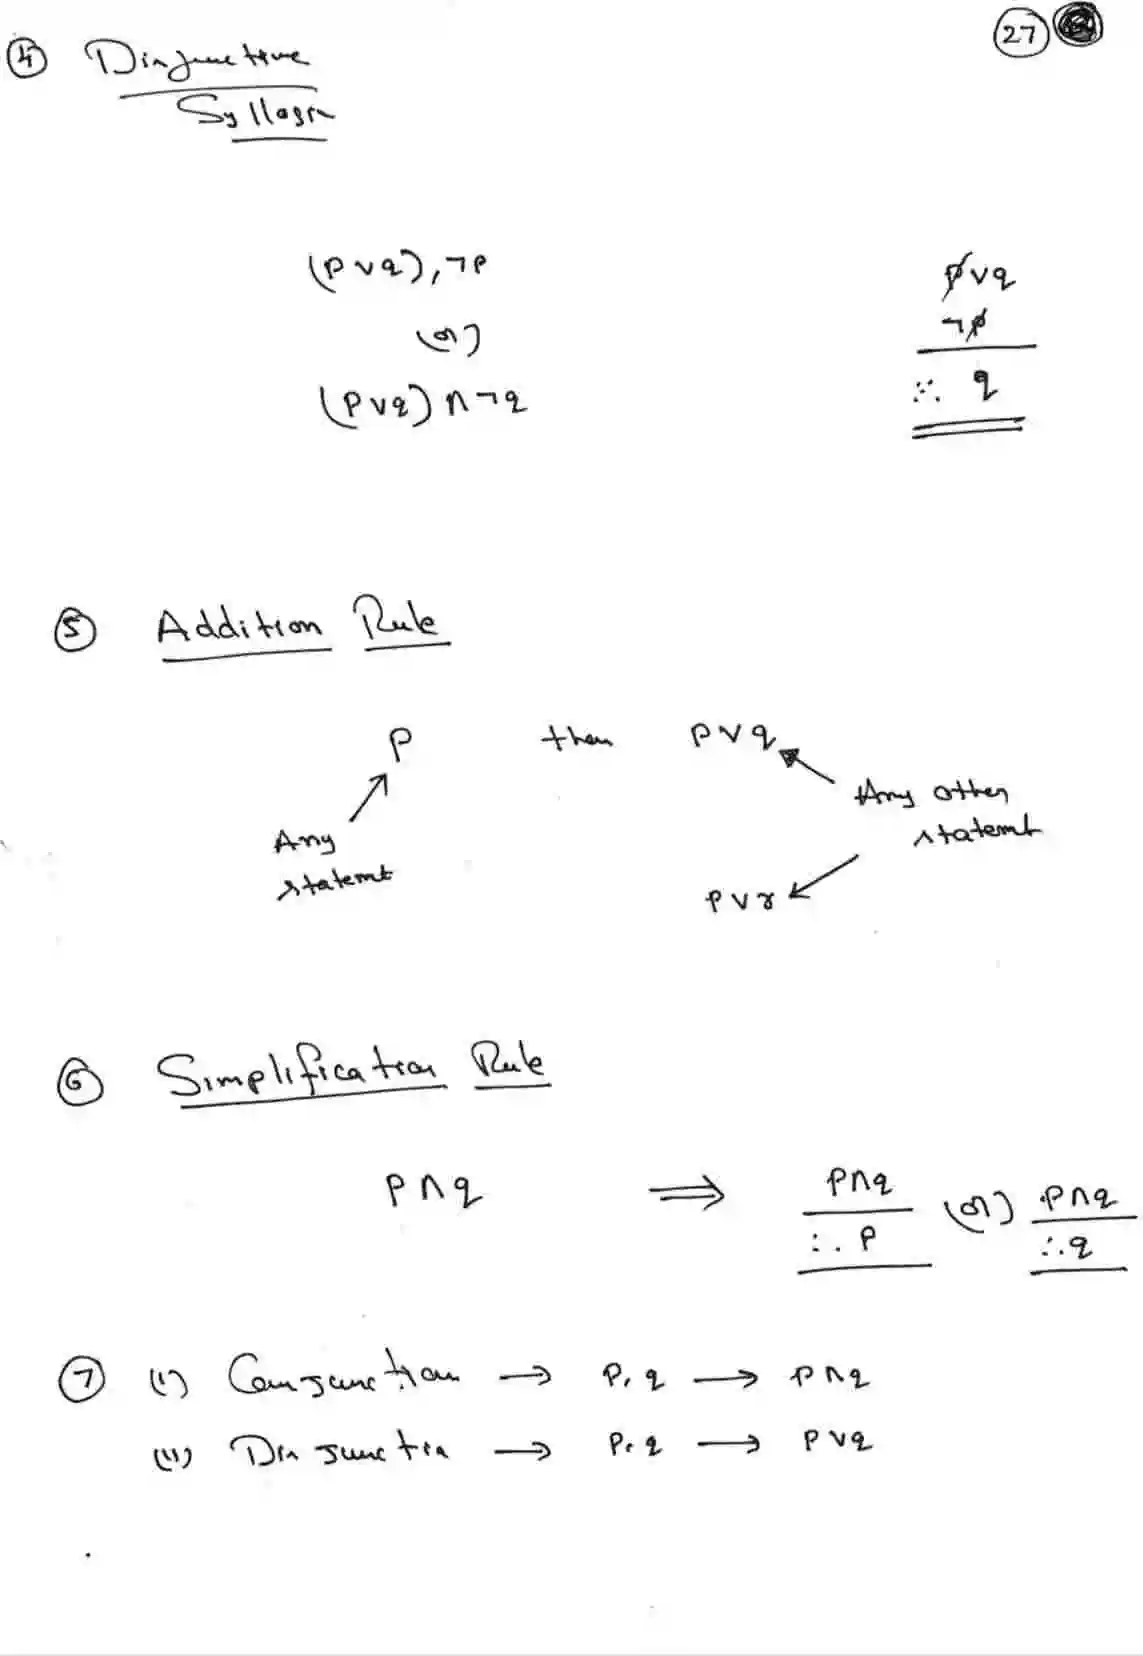 27
④ Disjunctive
Syllogism
(p∨q), ¬p
(or)
(p∨q) ∧ ¬q
p∨q
¬p
∴ q
⑤ Addition Rule
p then p∨q
Any
statemt
Any other
statemt
p∨r
⑥ Simplification Rule
p∧q ⇒ p∧q (or) p∧q
∴ p ∴ q
⑦ (i) Conjunction → p, q → p∧q
(ii) Disjunction → p, q → p∨q